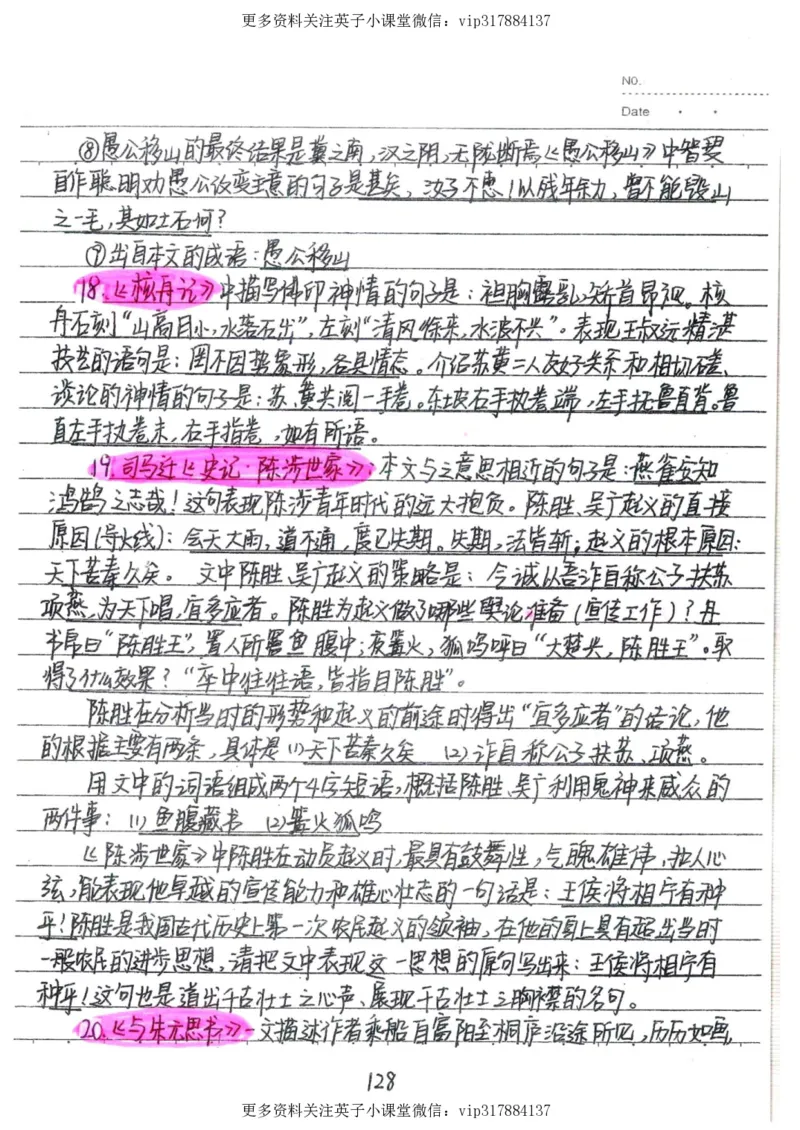 更多资料关注英子小课堂微信：vip317884137
No.
Date
⑧愚公移山的最终结果是冀之南,汉之阴,无陇断焉《愚公移山》中智叟
自作聪明劝愚公改变主意的句子是甚矣，汝之不惠！以残年余力，曾不能毁山
之一毛,其如土石何？
⑨出自本文的成语：愚公移山
18.《核舟记》中描写佛印神情的句子是：袒胸露乳,矫首昂视。核
舟石刻“山高月小,水落石出”,左刻“清风徐来,水波不兴”。表现王叔远精湛
技艺的语句是：罔不因势象形,各具情态。介绍苏黄二人友好关系和相切磋、
谈论的神情的句子是：苏、黄共阅一手卷。东坡右手执卷端,左手抚鲁直背。鲁
直左手执卷末,右手指卷,如有所语。
19.司马迁《史记·陈涉世家》：本文与之意思相近的句子是：燕雀安知
鸿鹄之志哉！这句表现陈涉青年时代的远大抱负。陈胜、吴广起义的直接
原因(导火线)：会天大雨,道不通,度已失期。失期,法皆斩；起义的根本原因：
天下苦秦久矣。文中陈胜、吴广起义的策略是：今诚以吾诈自称公子扶苏
项燕,为天下唱,宜多应者。陈胜为起义做了哪些舆论准备(宣传工作)？丹
书帛曰“陈胜王”,置人所罾鱼腹中；夜篝火,狐鸣呼曰“大楚兴,陈胜王”。取
得了什么效果？“卒中往往语,皆指目陈胜”。
陈胜在分析当时的形势和起义的前途时得出“宜多应者”的结论,他
的根据主要有两条,具体是 (1)天下苦秦久矣 (2)诈自称公子扶苏、项燕。
用文中的词语组成两个4字短语,概括陈胜、吴广利用鬼神来威众的
两件事：(1)鱼腹藏书 (2)篝火狐鸣
《陈涉世家》中陈胜在动员起义时,最具有鼓舞性,气魄雄伟,扣人心
弦,能表现他卓越的宣传能力和雄心壮志的一句话是：王侯将相宁有种
乎！陈胜是我国古代历史上第一次农民起义的领袖,在他的身上具有超出当时
一般农民的进步思想,请把文中表现这一思想的原句写出来：王侯将相宁有
种乎！这句也是道出千古壮士之心声、展现千古壮士之胸襟的名句。
20.《与朱元思书》一文描述作者乘船自富阳至桐庐沿途所见,历历如画,
128
更多资料关注英子小课堂微信：vip317884137